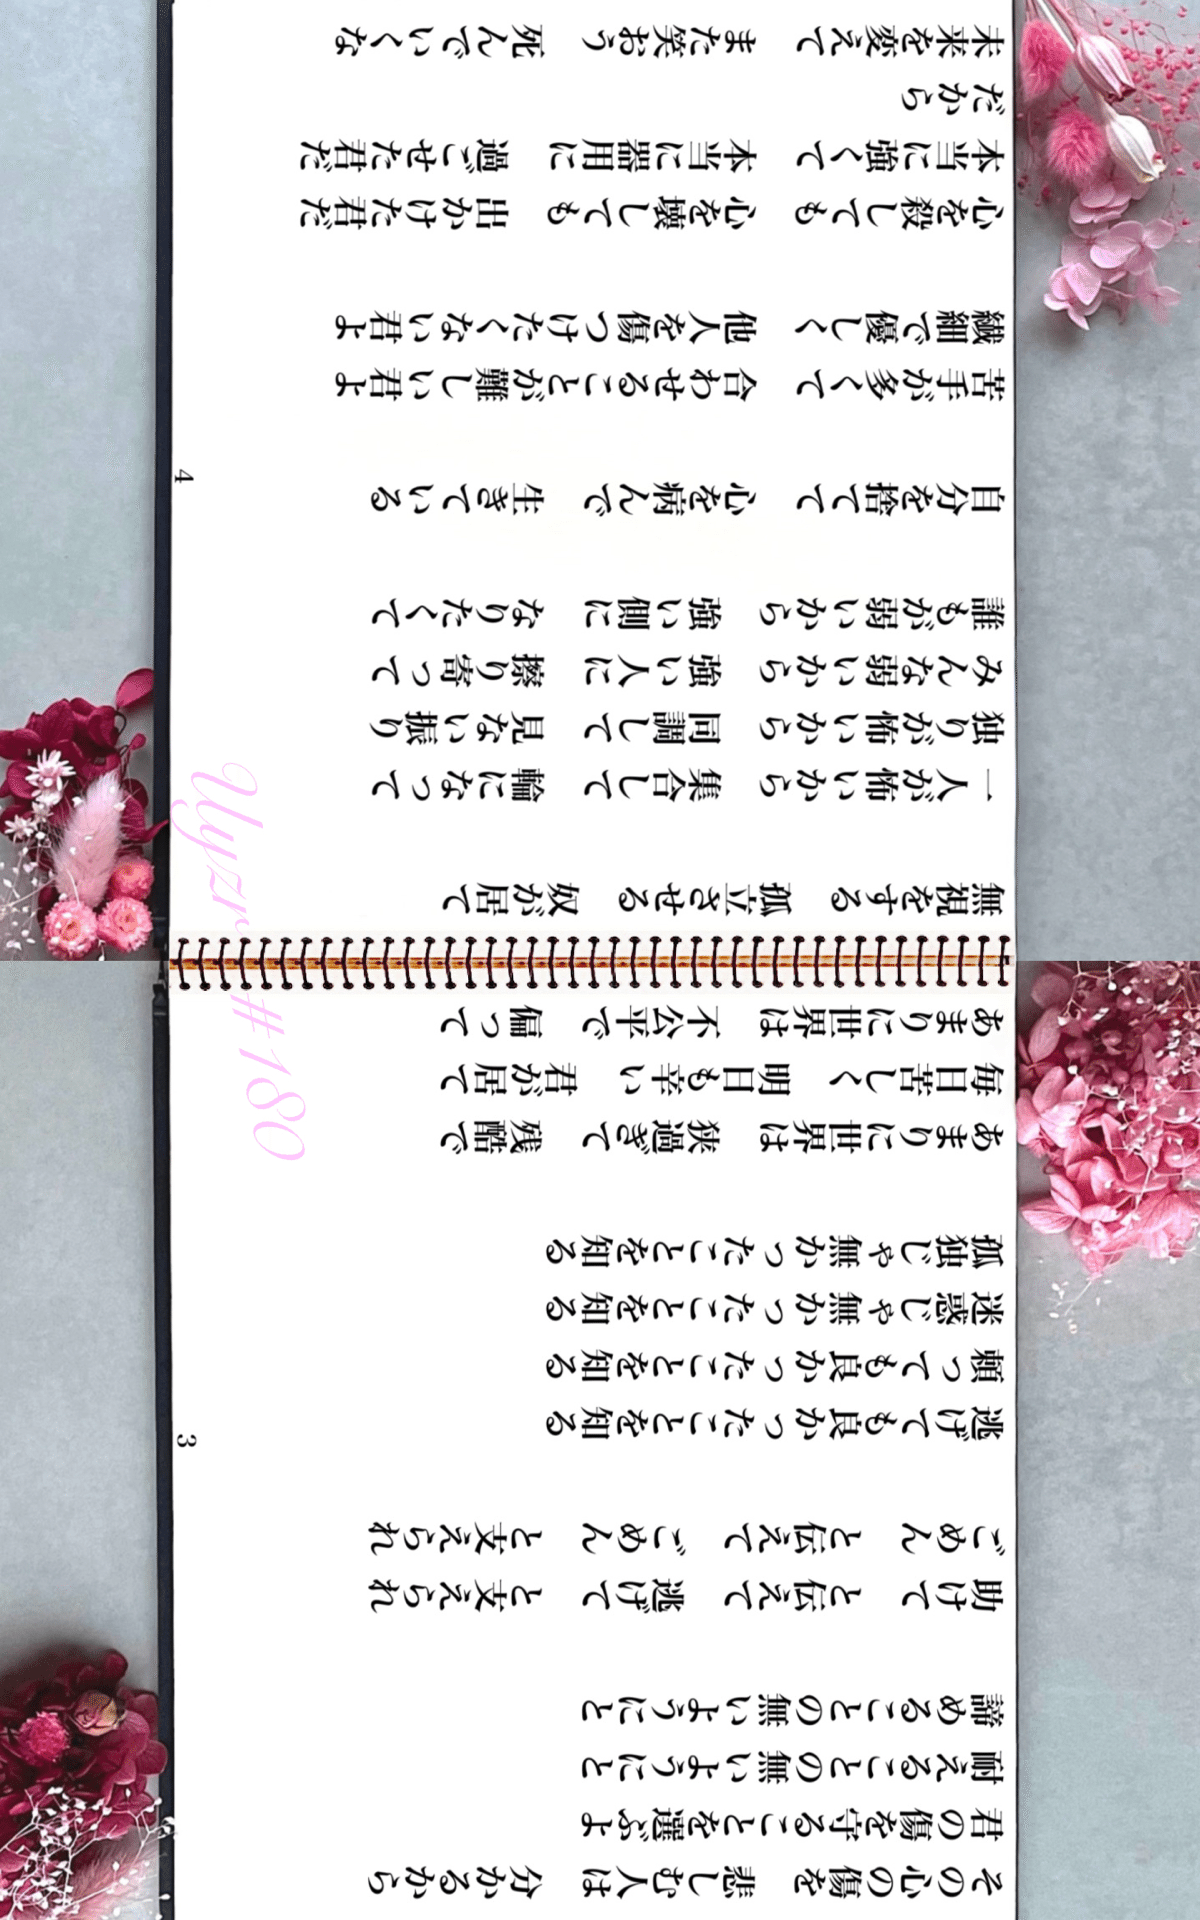 その心の傷を　悲しむ人は　分かるから
君の傷を守ることを選ぶよ
耐えることの無いようにと
諦めることの無いようにと
助けて　と伝えて　逃げて　と支えられ
ごめん　と伝えて　ごめん　と支えられ
逃げても良かったことを知る
頼っても良かったことを知る
迷惑じゃ無かったことを知る
孤独じゃ無かったことを知る
あまりに世界は　狭過ぎて　残酷で
毎日苦しく　明日も辛い　君が居て
あまりに世界は　不公平で　偏って
3
無視をする　孤立させる　奴が居て
一人が怖いから　集合して　輪になって
独りが怖いから　同調して　見ない振り
みんな弱いから　強い人に　擦り寄って
誰もが弱いから　強い側に　なりたくて
自分を捨てて　心を病んで　生きている
苦手が多くて　合わせることが難しい君よ
繊細で優しく　他人を傷つけたくない君よ
心を殺しても　心を壊しても　出かけた君だ
本当に強くて　本当に器用に　過ごせた君だ
だから
未来を変えて　また笑おう　死んでいくな
4
Uyzr#180